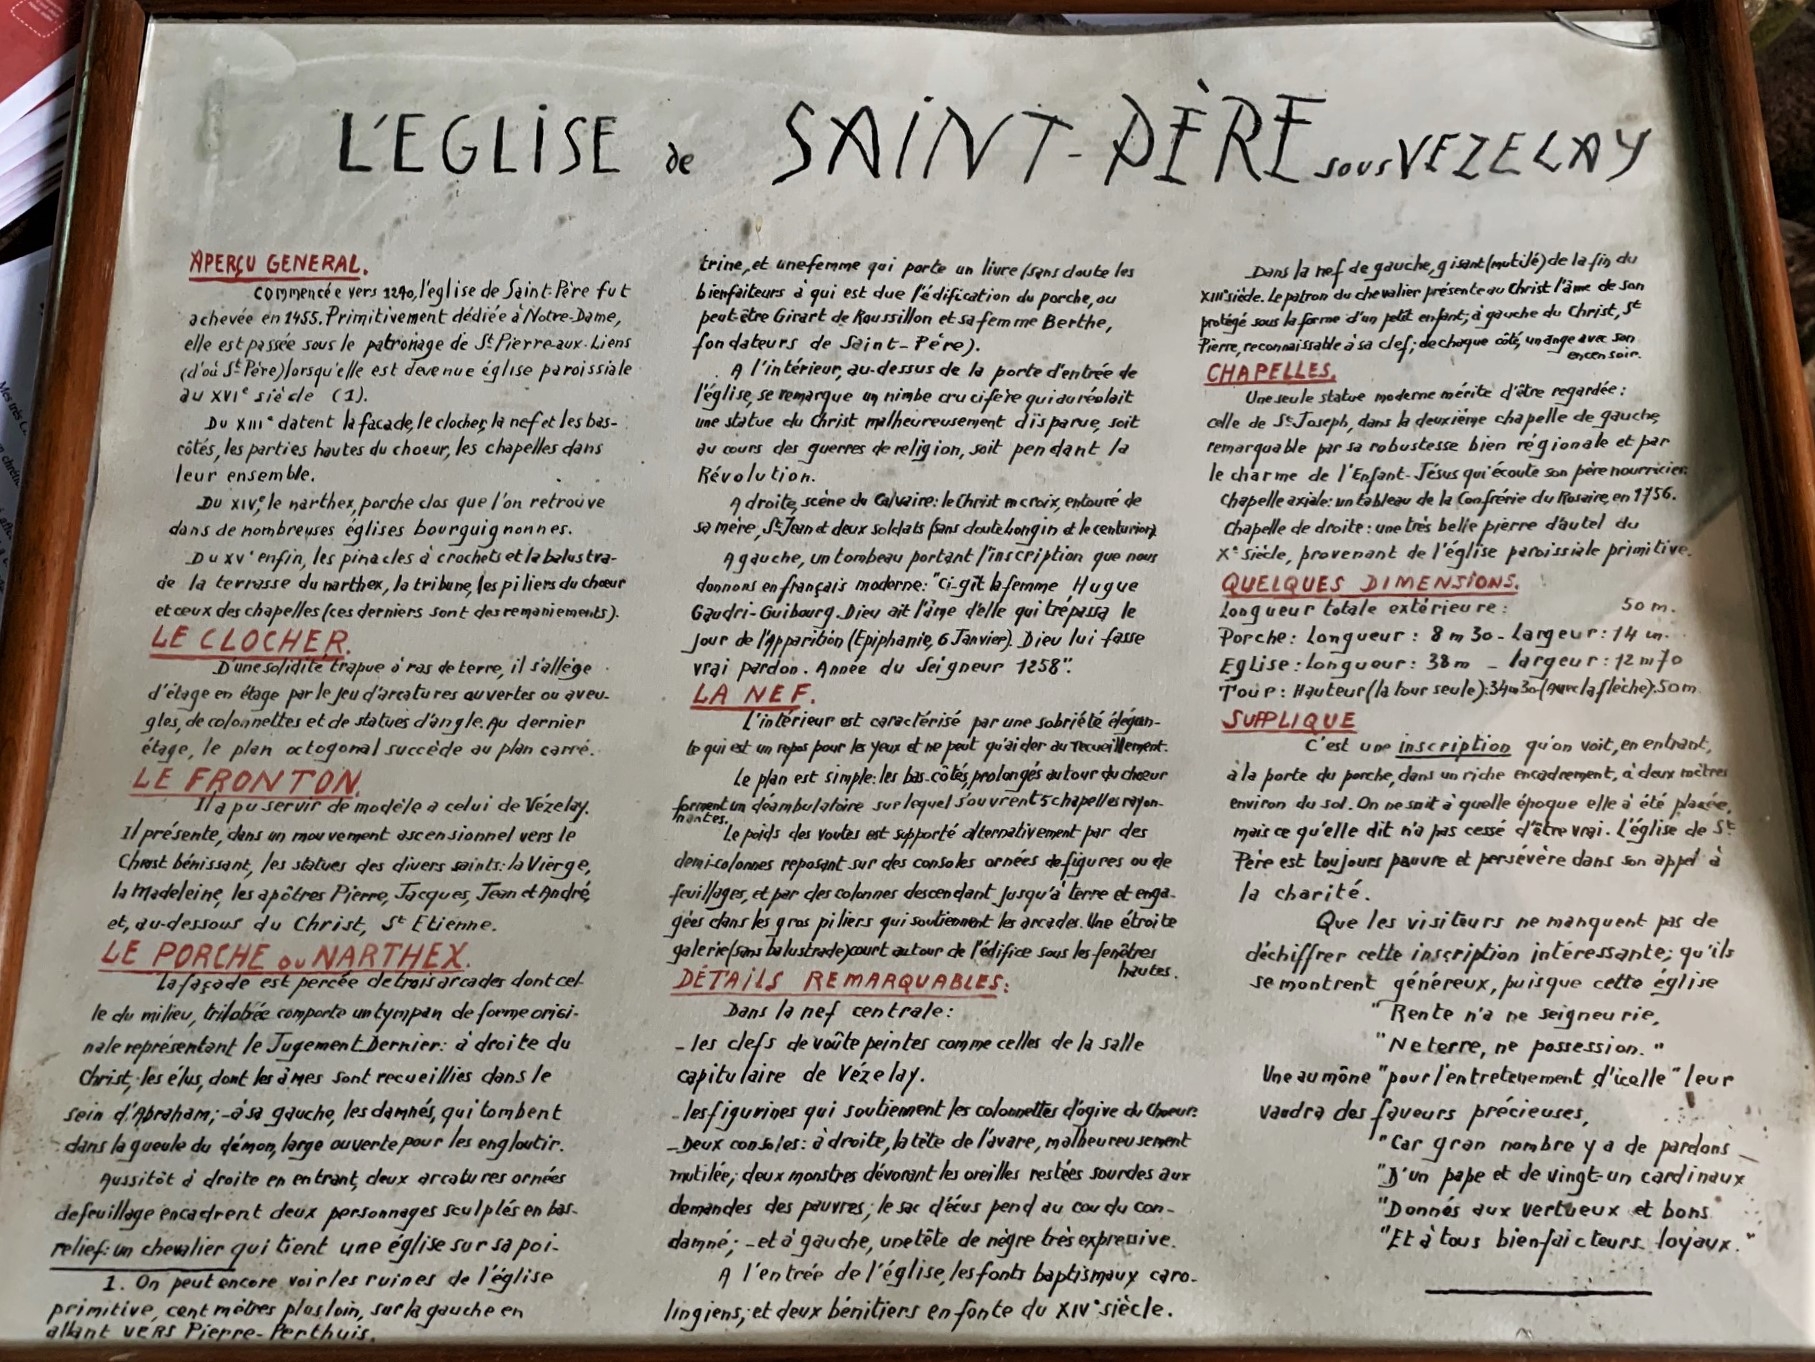 L'EGLISE de SAINT-PÈRE sous VEZELAY
APERÇU GENERAL.
Commencée vers 1240, l'eglise de Saint-Père fut
achevée en 1455. Primitivement dédiée à Notre-Dame,
elle est passée sous le patronage de St Pierre-aux-Liens
(d'où St Père) lorsqu'elle est devenue église paroissiale
au XVIe siècle (1).
Du XIIIe datent la façade, le clocher, la nef et les bas-
côtés, les parties hautes du choeur, les chapelles dans
leur ensemble.
Du XIVe, le narthex, porche clos que l'on retrouve
dans de nombreuses églises bourguignonnes.
Du XVe enfin, les pinacles à crochets et la balustra-
de la terrasse du narthex, la tribune, les piliers du chœur
et ceux des chapelles (ces derniers sont des remaniements).
LE CLOCHER.
D'une solidité trapue à ras de terre, il s'allège
d'étage en étage par le jeu d'arcatures ouvertes ou aveu-
gles, de colonnettes et de statues d'angle. Au dernier
étage, le plan octogonal succède au plan carré.
LE FRONTON.
Il a pu servir de modèle a celui de Vézelay.
Il présente, dans un mouvement ascensionnel vers le
Christ bénissant, les statues des divers saints: la Vierge,
la Madeleine, les apôtres Pierre, Jacques, Jean et André,
et, au-dessous du Christ, St Etienne.
LE PORCHE ou NARTHEX.
La façade est percée de trois arcades dont cel-
le du milieu, trilobée comporte un tympan de forme origi-
nale représentant le Jugement Dernier: à droite du
Christ, les élus, dont les âmes sont recueillies dans le
sein d'Abraham; - à sa gauche, les damnés, qui tombent
dans la gueule du démon, large ouverte pour les engloutir.
Aussitôt à droite en entrant, deux arcatures ornées
de feuillage encadrent deux personnages sculptés en bas-
relief: un chevalier qui tient une église sur sa poi-
1. On peut encore voir les ruines de l'église
primitive, cent mètres plus loin, sur la gauche en
allant VERS Pierre-Perthuis.
trine, et une femme qui porte un livre (sans doute les
bienfaiteurs à qui est due l'édification du porche, ou
peut-être Girart de Roussillon et sa femme Berthe,
fondateurs de Saint-Père).
A l'intérieur, au-dessus de la porte d'entrée de
l'église, se remarque un nimbe crucifère qui auréolait
une statue du Christ malheureusement disparue, soit
au cours des guerres de religion, soit pendant la
Révolution.
A droite, scène du Calvaire: le Christ en croix, entouré de
sa mère, St Jean et deux soldats (sans doute Longin et le centurion).
A gauche, un tombeau portant l'inscription que nous
donnons en français moderne: "Ci-gît la femme Hugue
Gaudri-Guibourg. Dieu ait l'âme d'elle qui trépassa le
Jour de l'Apparition (Epiphanie, 6 Janvier). Dieu lui fasse
vrai pardon. Année du Seigneur 1258".
LA NEF.
L'intérieur est caractérisé par une sobriété élégan-
te qui est un repos pour les yeux et ne peut qu'aider au recueillement.
Le plan est simple: les bas-côtés, prolongés autour du chœur
forment un déambulatoire sur lequel s'ouvrent 5 chapelles rayon-
nantes.
Le poids des voutes est supporté alternativement par des
demi-colonnes reposant sur des consoles ornées de figures ou de
feuillages, et par des colonnes descendant Jusqu'à terre et enga-
gées dans les gros piliers qui soutiennent les arcades. Une étroite
galerie (sans balustrade) court autour de l'édifice sous les fenêtres
hautes.
DÉTAILS REMARQUABLES:
Dans la nef centrale:
- les clefs de voûte peintes comme celles de la salle
capitulaire de Vézelay.
- les figurines qui soutiennent les colonnettes d'ogive du Choeur.
- Deux consoles: à droite, la tête de l'avare, malheureusement
mutilée; deux monstres dévorant les oreilles restées sourdes aux
demandes des pauvres; le sac d'écus pend au cou du con-
damné; - et à gauche, une tête de nègre très expressive.
A l'entrée de l'église, les fonts baptismaux caro-
lingiens; et deux bénitiers en fonte du XIVe siècle.
Dans la nef de gauche, gisant (mutilé) de la fin du
XIIIe siècle. Le patron du chevalier présente au Christ l'âme de son
protégé sous la forme d'un petit enfant; à gauche du Christ, St
Pierre, reconnaissable à sa clef; de chaque côté, un ange avec son
encensoir.
CHAPELLES.
Une seule statue moderne mérite d'être regardée:
celle de St Joseph, dans la deuxième chapelle de gauche,
remarquable par sa robustesse bien régionale et par
le charme de l'Enfant-Jésus qui écoute son père nourricier.
Chapelle axiale: un tableau de la Confrérie du Rosaire, en 1756.
Chapelle de droite: une très belle pierre d'autel du
Xe siècle, provenant de l'église paroissiale primitive.
QUELQUES DIMENSIONS.
Longueur totale extérieure: 50 m.
Porche: Longueur: 8 m 30 - Largeur: 14 m.
Eglise: longueur: 38m - largeur: 12 m 70
Tour: Hauteur (la tour seule): 34m30 - (avec la flèche): 50m
SUPPLIQUE
C'est une inscription qu'on voit, en entrant,
à la porte du porche, dans un riche encadrement, à deux mètres
environ du sol. On ne sait à quelle époque elle à été placée,
mais ce qu'elle dit n'a pas cessé d'être vrai. L'église de St
Père est toujours pauvre et persévère dans son appel à
la charité.
Que les visiteurs ne manquent pas de
déchiffrer cette inscription intéressante; qu'ils
se montrent généreux, puisque cette église
"Rente n'a ne seigneurie,
"Ne terre, ne possession."
Une aumône "pour l'entretenement d'icelle" leur
vaudra des faveurs précieuses,
"Car gran nombre y a de pardons
"D'un pape et de vingt-un cardinaux
"Donnés aux vertueux et bons
"Et à tous bienfaicteurs loyaux."